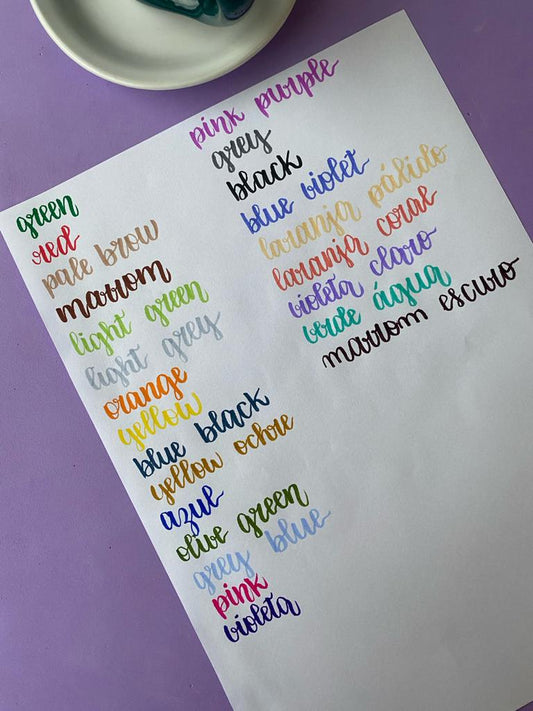 green
red
pale brow
marrom
light green
light grey
orange
yellow
blue black
yellow ochre
azul
olive green
grey blue
pink
violeta
pink purple
grey
black
blue violet
laranja pálido
laranja coral
violeta claro
verde água
marrom escuro